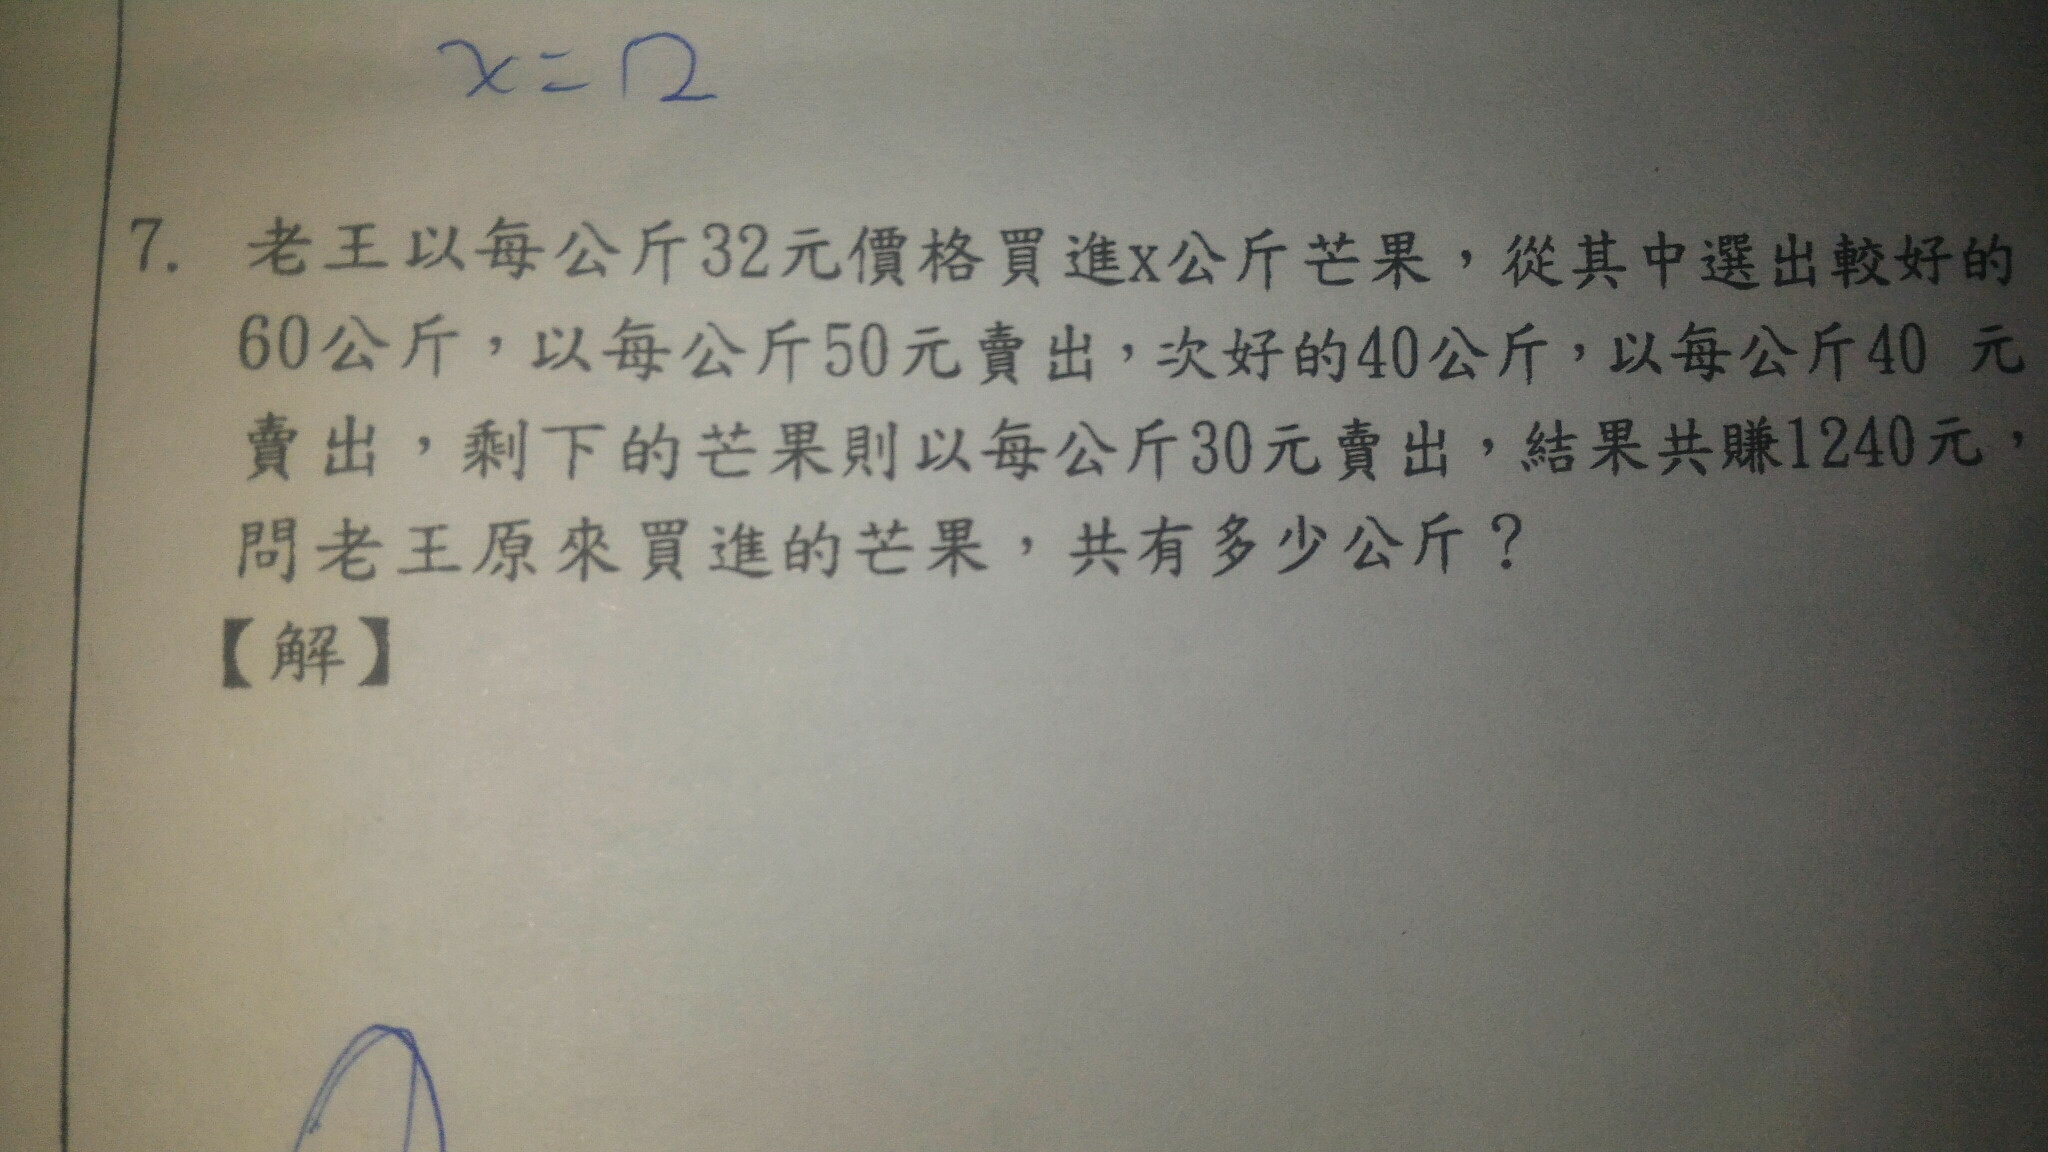 x=12
7. 老王以每公斤32元價格買進x公斤芒果，從其中選出較好的
60公斤，以每公斤50元賣出，次好的40公斤，以每公斤40 元
賣出，剩下的芒果則以每公斤30元賣出，結果共賺1240元，
問老王原來買進的芒果，共有多少公斤？
【解】